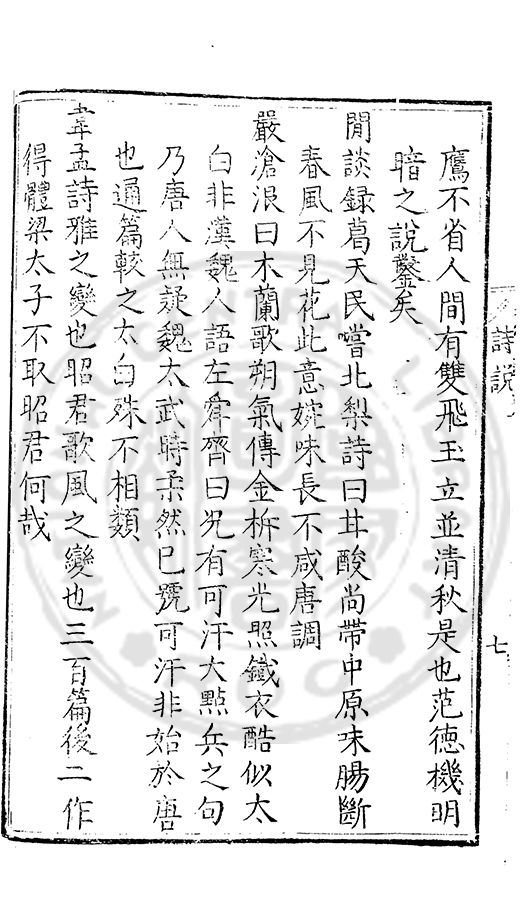 詩說
七
鷹不省人間有雙飛玉立並清秋是也范德機明
暗之說鑿矣
閒談録葛天民嘗北梨詩曰甘酸尚帶中原味腸斷
春風不見花此意婉味長不咸唐調
嚴滄浪曰木蘭歌朔氣傳金柝寒光照鐵衣酷似太
白非漢魏人語左舜齊曰况有可汗大點兵之句
乃唐人無疑魏太武時柔然已號可汗非始於唐
也通篇較之太白殊不相類
韋孟詩雅之變也昭君歌風之變也三百篇後二作
得體梁太子不取昭君何哉